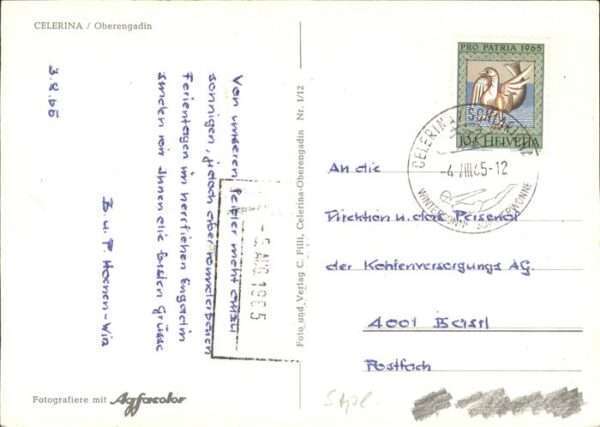 CELERINA / Oberengadin
3.8.65
Von unseren leider nicht allzu
sonnigen, jedoch aber wunderbaren
Ferientagen im herrlichen Engadin
senden wir Ihnen die besten Grüsse
B. u. P.
Foto und Verlag C. Filli, Celerina-Oberengadin Nr. 1/12
Fotografiere mit Agfacolor
PRO PATRIA 1965
HELVETIA
CELERINA
-4.VIII.65-12
5. AUG. 1965
An die
Direktion u. das Personal
der Kohlenversorgungs AG.
4001 Basel
Postfach